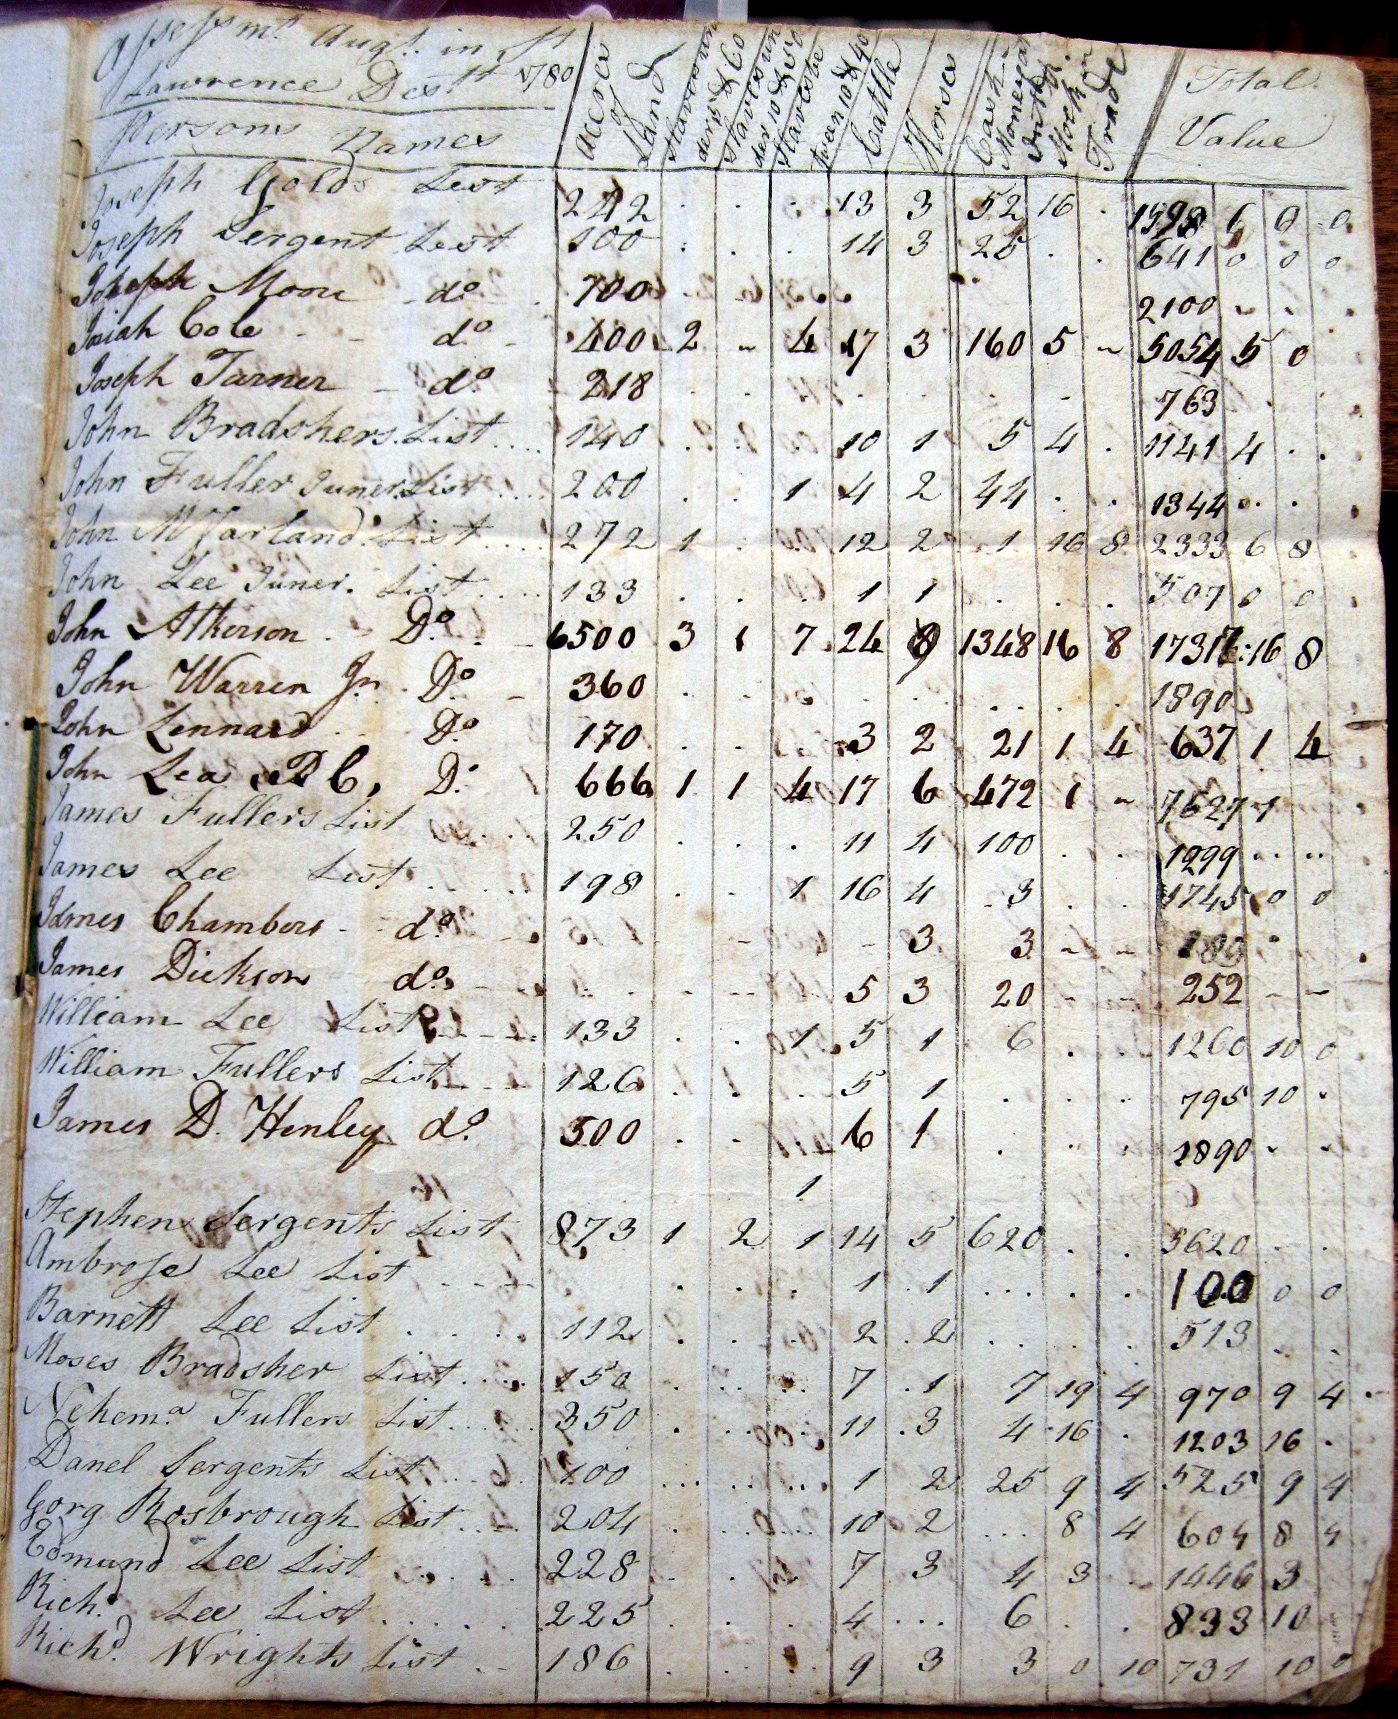 Assessmt. Augt. in St
Lawrence Destt 1780
Persons Names
Accres of Land
Slaves under 5 & 60
Slaves under 10 & 50
Slaves between 10 & 40
Cattle
Horses
Cash
Money
Stock
Trade
Total Value
Joseph Golds List 242 . . . 13 3 52 16 . 1598 6 0 0
Joseph Sergent List 100 . . . 14 3 25 . . 641 0 0 0
Joseph Moore do. 700 2100
Isiah Cole do. 400 2 - 4 17 3 160 5 - 5054 5 0
Joseph Tarner do. 218 763
John Bradshers List 140 10 1 5 4 . 1141 4 . .
John Fuller Juner List 200 . . 1 4 2 44 . . 1344 . .
John McFarland List 272 1 . 12 2 1 16 8 2333 6 8
John Lee Juner. List 133 . . . 1 1 . . . 507 0 0
John Atkerson Do. 6500 3 1 7 24 8 1348 16 8 17317:16 8
John Warren Jr. Do. 360 1890
John Lennard Do. 170 . . . 3 2 21 1 4 637 1 4
John Lea B C, Do. 666 1 1 4 17 6 472 1 - 7627 1
James Fullers List 250 . . . 11 4 100 . . 1299
James Lee List 198 . . 1 16 4 3 . . 1745 0 0
James Chambers do. 3 3 - -
James Dickson do. 5 3 20 - - 252 - -
William Lee List 133 . . 1 5 1 6 . . 1260 10 0
William Fullers List 126 . . . 5 1 . . . 795 10 .
James D. Henley do. 500 . . . 6 1 . . . 1890 . .
1
Stephen Sergents List 873 1 2 1 14 5 620 . . 5620 . .
Ambrose Lee List . . . 1 1 . . . 100 0 0
Barnett Lee List 112 . . . 2 2 . . . 513 . .
Moses Bradsher List 150 . . . 7 1 7 19 4 970 9 4
Nehema. Fullers List 350 . . . 11 3 4 16 . 1203 16 .
Danel Sergents List 100 . . . 1 2 25 9 4 525 9 4
Gorg Rosbrough List 204 . . . 10 2 . 8 4 604 8 4
Edmund Lee List 228 . . . 7 3 4 3 . 1446 3
Richd. Lee List 225 . . . 4 . 6 . . 833 10
Richd. Wrights List 186 . . . 9 3 3 0 10 731 10 0